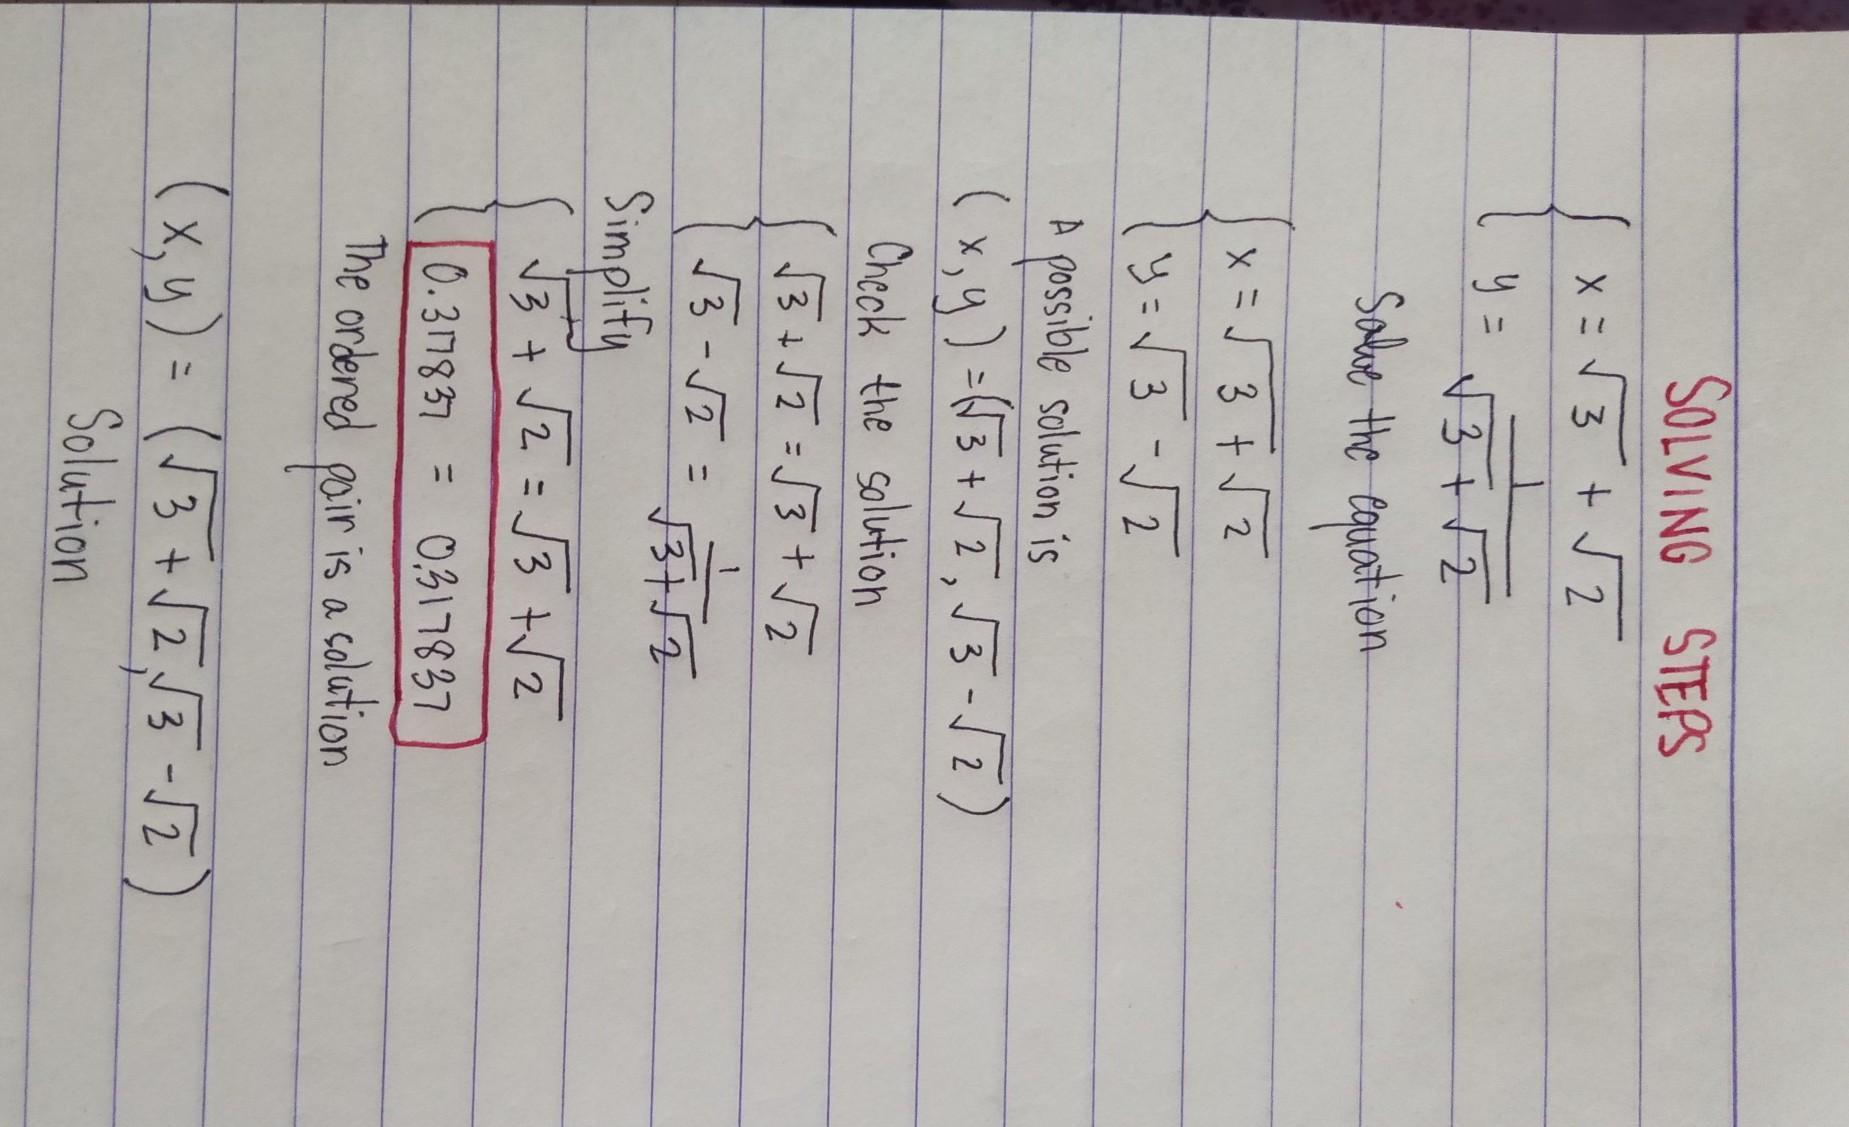 SOLVING STEPS
x = √3 + √2
y = 1/(√3 + √2)
Solve the equation
x = √3 + √2
y = √3 - √2
A possible solution is
(x, y) = (√3 + √2, √3 - √2)
Check the solution
√3 + √2 = √3 + √2
√3 - √2 = 1/(√3 + √2)
Simplify
√3 + √2 = √3 + √2
0.317837 = 0.317837
The ordered pair is a solution
(x, y) = (√3 + √2, √3 - √2)
Solution